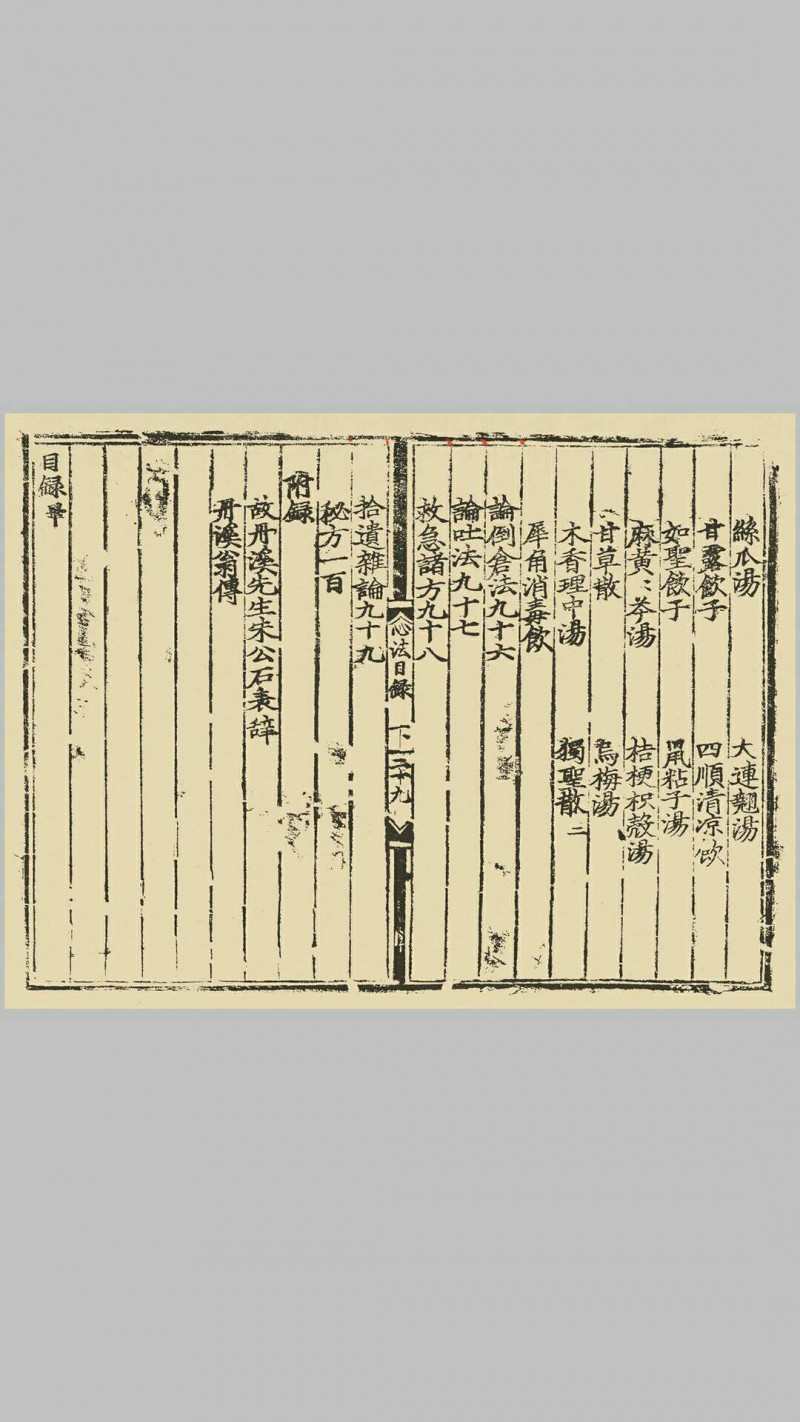 絲瓜湯　大連翹湯
甘露飲子　四順清凉飲
如聖飲子　鼠粘子湯
麻黃〻芩湯　桔梗枳殼湯
甘草散　烏梅湯
木香理中湯　獨聖散二
犀角消毒飲
論倒倉法九十六
論吐法九十七
救急諸方九十八
心法目錄　下　三十九
拾遺雜論九十九
秘方一百
附録
故丹溪先生朱公石表辭
丹溪翁傳
目録畢